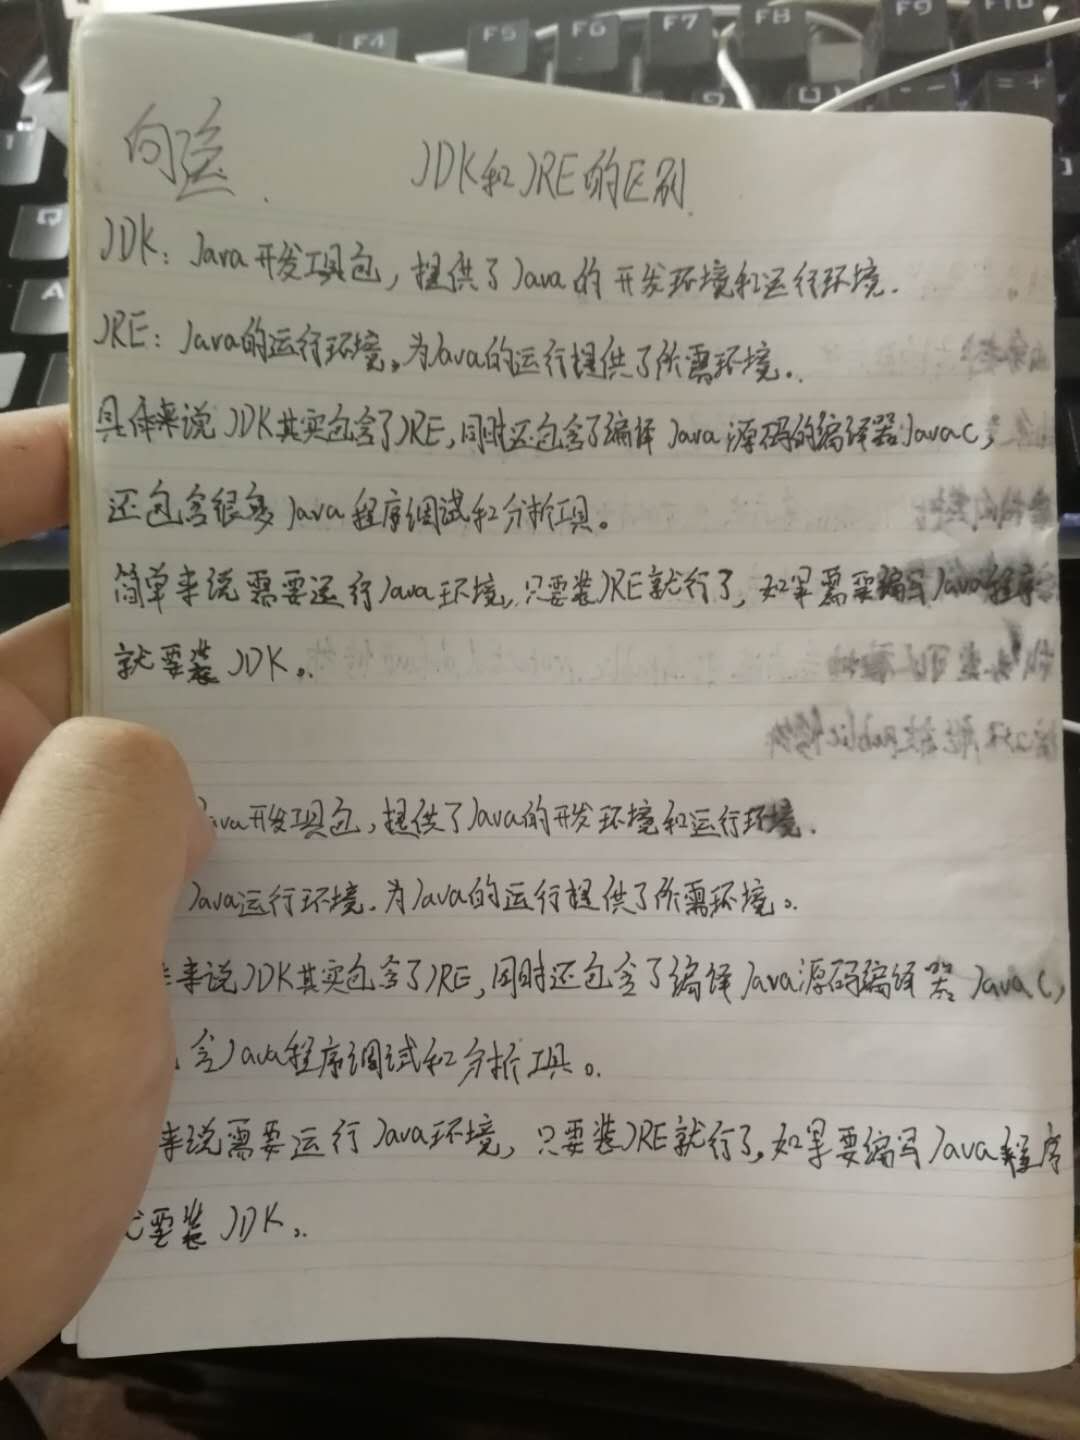 JDK和JRE的区别.
JDK: Java开发工具包，提供了Java的开发环境和运行环境.
JRE: Java的运行环境。为Java的运行提供了所需环境。
具体来说JDK其实包含了JRE,同时还包含了编译Java源码的编译器JavaC,
还包含很多Java程序调试和分析工具。
简单来说需要运行Java环境,只要装JRE就行了,如果需要编写Java程序
就要装JDK。
Java开发工具包,提供了Java的开发环境和运行环境.
Java运行环境.为Java的运行提供了所需环境。
来说JDK其实包含了JRE,同时还包含了编译Java源码编译器JavaC,
含Java程序调试和分析工具。
来说需要运行Java环境,只要装JRE就行了,如果要编写Java程序
要装JDK。
F4 F5 F6 F7 F8 F9 F10
Q
A